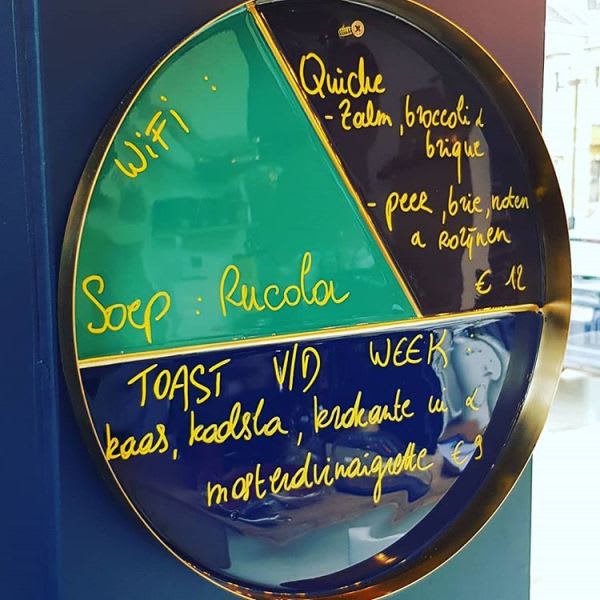 WiFi :
Soep : Rucola
Quiche
- Zalm, broccoli &
brique
- peer, brie, noten
& Rozijnen
€ 12
TOAST V/D WEEK :
kaas, kadsla, krokante ui &
mosterdvinaigrette € 9